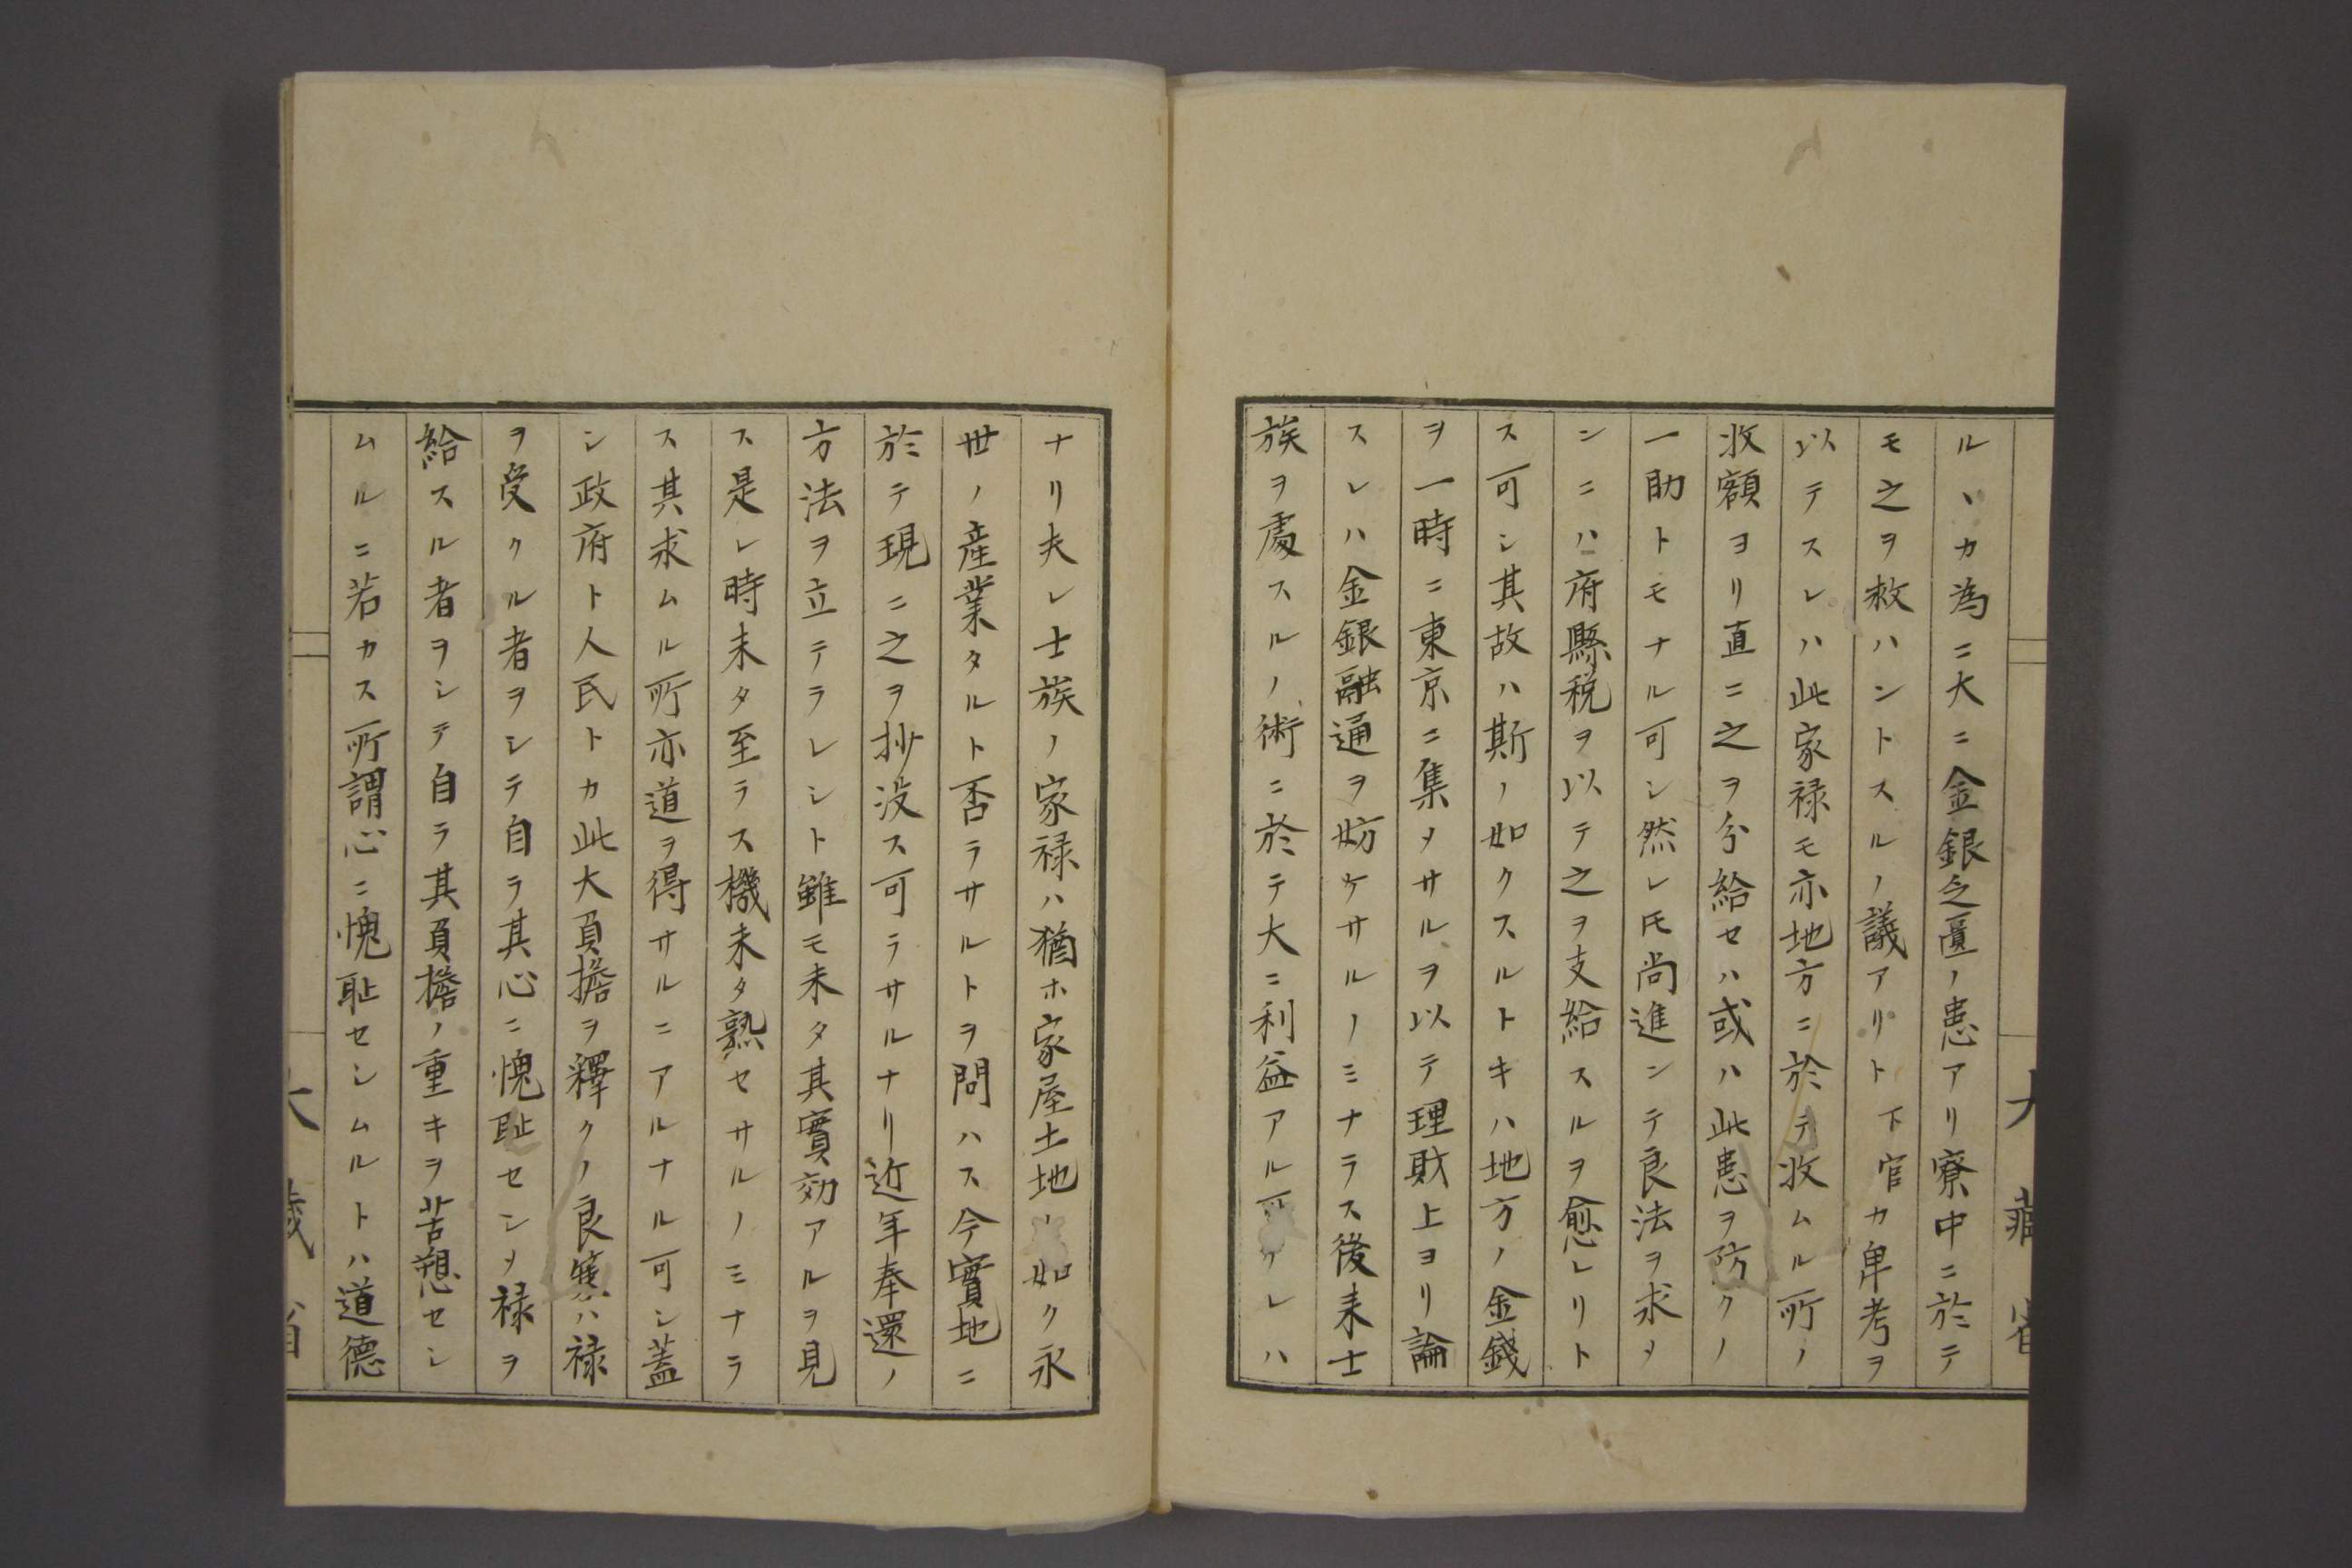 ルヽカ為ニ大ニ金銀乏匱ノ患アリ寮中ニ於テ
モ之ヲ救ハントスルノ議アリト下官カ卑考ヲ
以テスレハ此家禄モ亦地方ニ於テ收ムル所ノ
收額ヨリ直ニ之ヲ分給セハ或ハ此患ヲ防クノ
一助トモナル可シ然レ𪜈尚進ンテ良法ヲ求メ
ンニハ府縣税ヲ以テ之ヲ支給スルヲ愈レリト
ス可シ其故ハ斯ノ如クスルトキハ地方ノ金錢
ヲ一時ニ東京ニ集メサルヲ以テ理財上ヨリ論
スレハ金銀融通ヲ妨ケサルノミナラス後来士
族ヲ處スルノ術ニ於テ大ニ利益アル可クレハ
ナリ夫レ士族ノ家禄ハ猶ホ家屋土地ノ如ク永
世ノ産業タルト否ラサルトヲ問ハス今實地ニ
於テ現ニ之ヲ抄没ス可ラサルナリ近年奉還ノ
方法ヲ立テラレシト雖モ未タ其實効アルヲ見
ス是レ時未タ至ラス機未タ熟セサルノミナラ
ス其求ムル所亦道ヲ得サルニアルナル可シ蓋
シ政府ト人民トカ此大負擔ヲ釋クノ良策ハ禄
ヲ受クル者ヲシテ自ラ其心ニ愧耻センメ禄ヲ
給スル者ヲシテ自ラ其負擔ノ重キヲ苦愬セシ
ムルニ若カス所謂心ニ愧耻センムルトハ道德
大藏省
大藏省